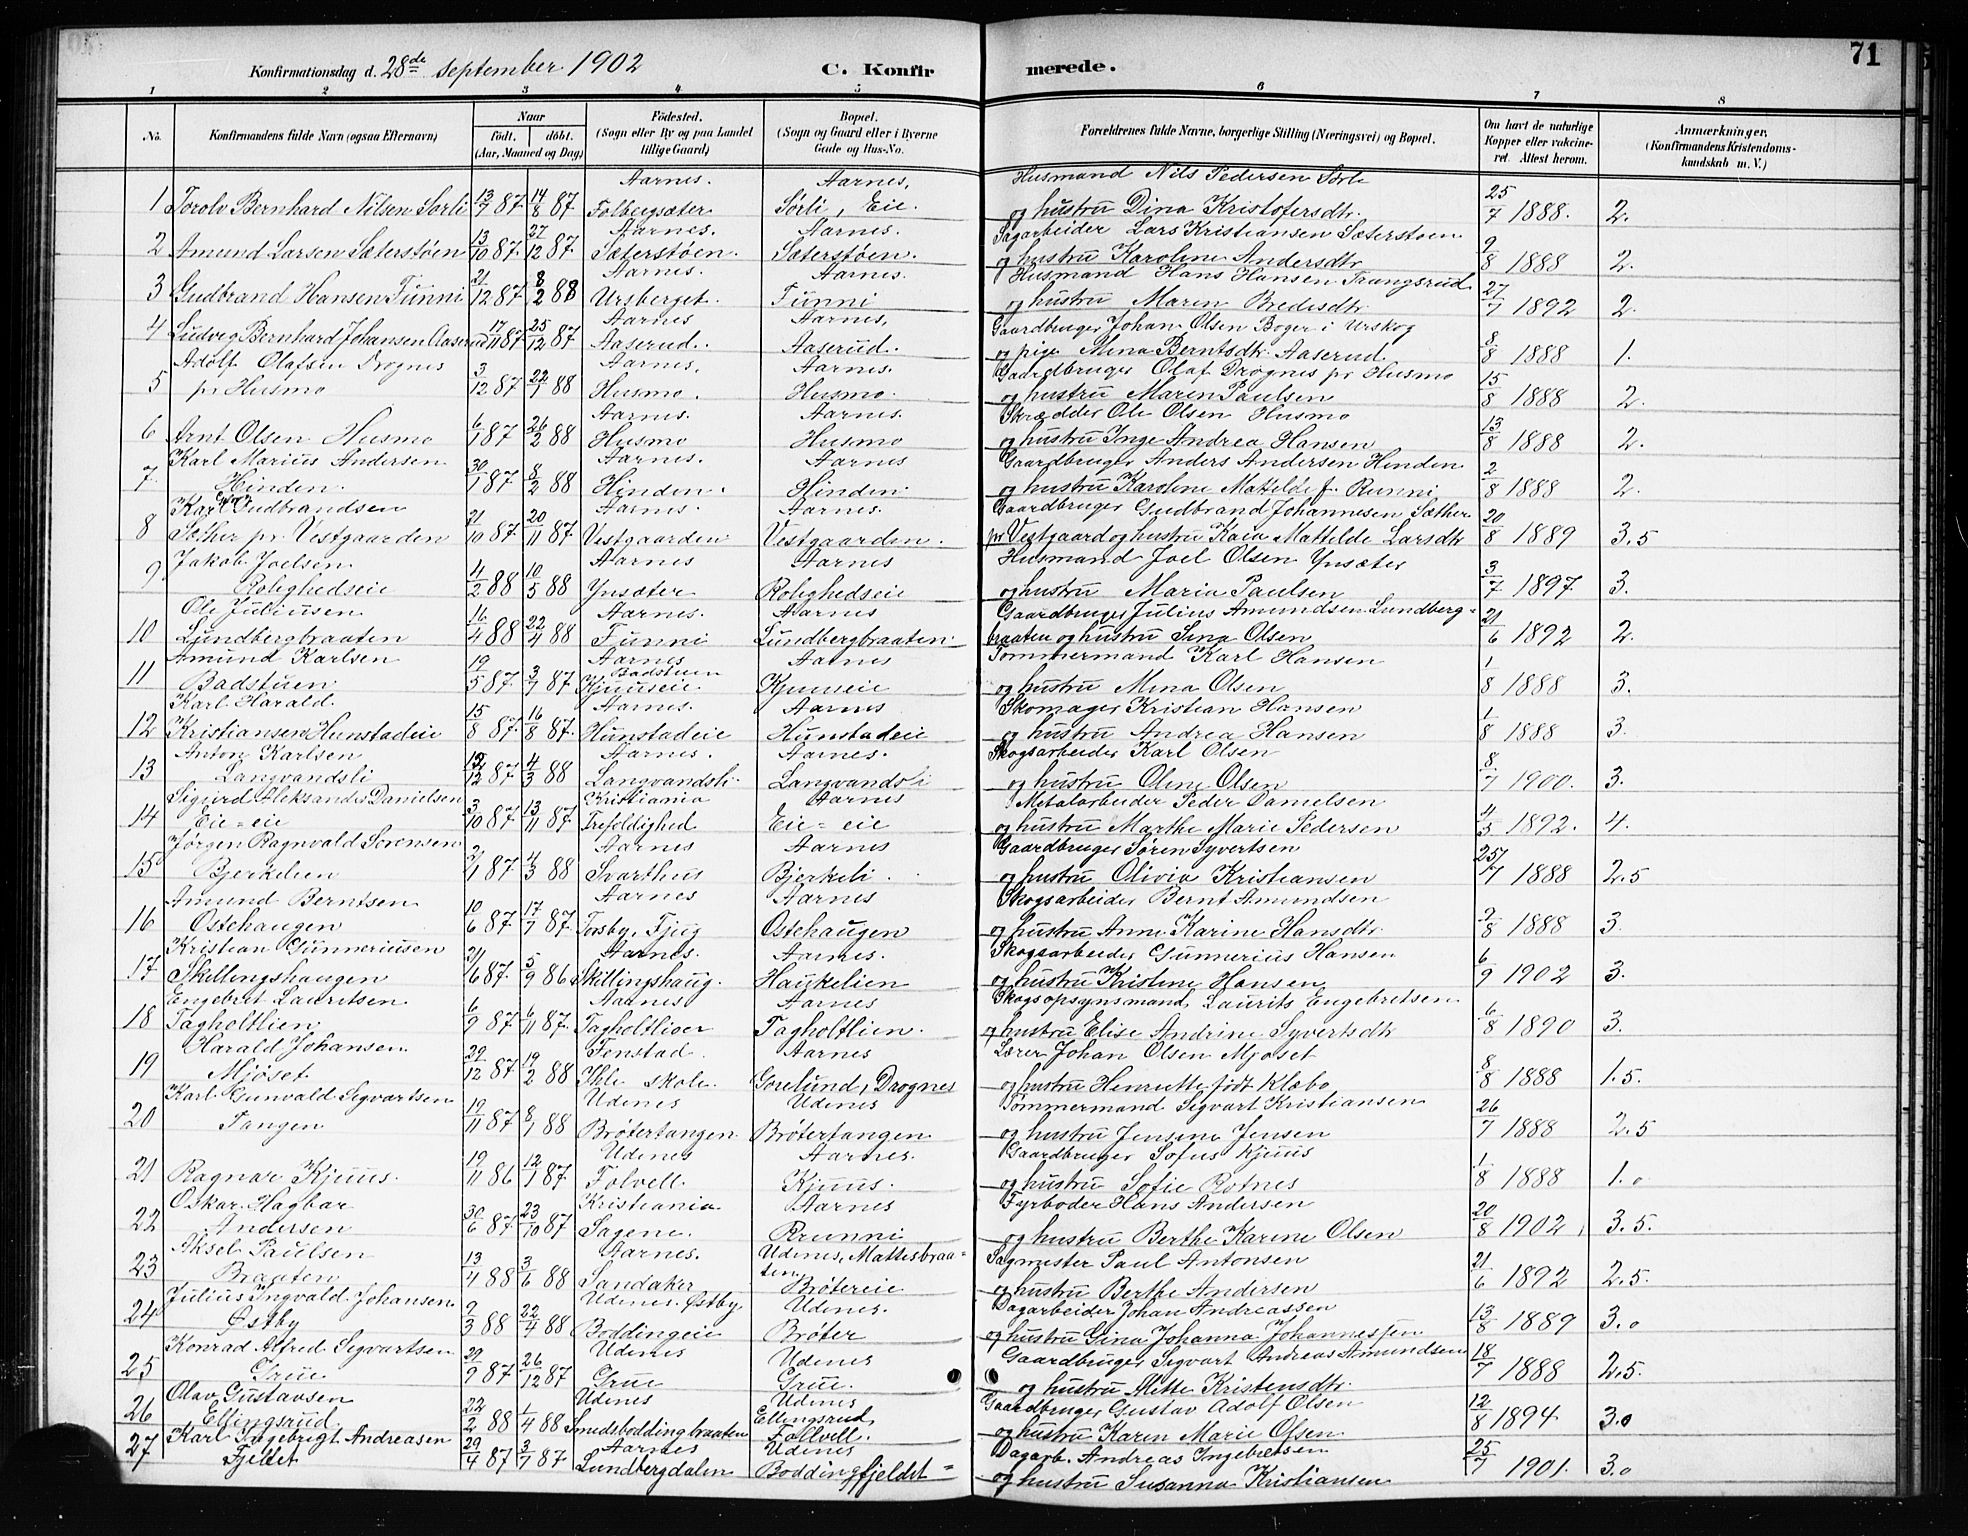 71
Konfirmationsdag d. 28de September 1902 C. Konfirmerede.
1 2 3 4 5 6 7 8
No. Konfirmandens fulde Navn (ogsaa Efternavn) Naar født. døbt. (Aar, Maaned og Dag) Fødested. (Sogn eller By og paa Landet tillige Gaard) Bopæl. (Sogn og Gaard eller i Byerne Gade og Hus-No. Forældrenes fulde Navne, borgerlige Stilling (Næringsvei) og Bopæl. Om havt de naturlige Kopper eller vakcineret. Attest herom. Anmærkninger, (Konfirmandens Kristendomskundskab m. V.)
Aarnes. Aarnes, Husmand Nils Pedersen Sörli
1 Torolv Bernhard Nilsen Sorli 13/7 87 14/8 87 Folbergsæter Sörli, Eie. og hustru Dina Kristofersdtr. 25/7 1888. 2.
Aarnes. Aarnes. Sagarbeider Lars Kristiansen Sæterstøen
2 Amund Larsen Sæterstøen 13/10 87 27/12 87 Sæterstøen. Sæterstøen. og hustru Karoline Andersdtr 9/8 1888 2.
Aarnes. Aarnes. Husmand Hans Hansen Trangsrud
3 Gudbrand Hansen Funni 21/12 87 8/2 88 Ursberget. Funni og hustru Maren Bredesdtr 27/7 1892 2.
Aarnes Aarnes. Gaardbruger Johan Olsen Boger i Urskog
4 Ludvig Bernhard Johansen Aaserud 17/11 87 25/12 87 Aaserud. Aaserud. og pige Mina Berntsdtr. Aaserud. 8/8 1888 1.
Adolf Olafsen Drognes Aarnes. Aarnes. Gaardbruger Olaf Drognes pr Husmo
5 pr Husmo 3/12 87 22/1 88 Husmo. Husmo. og hustru Maren Paulsen 15/8 1888 2.
Aarnes. Aarnes. Skrædder Ole Olsen Husmo
6 Arnt Olsen Husmo 6/1 87 26/2 88 Husmo Husmo og hustru Inge Andrea Hansen 13/8 1888 2.
Karl Marius Andersen Aarnes. Aarnes Gaardbruger Anders Andersen Henden
7. Hinden. 30/1 87 8/2 88 Hinden. Hinden og hustru Karoline Mattilde f. Runni 2/8 1888 2.
Karl Gudbrandsen Aarnes. Aarnes. Gaardbruger Gudbrand Johannesen Sæther
8 Sæther pr Vestgaarden 21/10 87 20/11 87 Vestgaarden Vestgaarden. pr Vestgaard og hustru Kaia Mattilde Larsdtr 20/8 1889 3.5
Jakob Joelsen Aarnes Aarnes Husmand Joel Olsen Ynsæter
9 Rolighedseie 4/2 88 10/5 88 Ynsæter Rolighedseie og hustru Maria Paulsen 3/7 1897. 3.
Ole Juliusen Aarnes. Aarnes Gaardbruger Julius Amundsen Lundberg-
10 Lundbergbraaten 16/4 88 22/4 88 Funni Lundbergbraaten. braaten og hustru Lina Olsen 21/6 1892 2.
Amund Karlsen Aarnes Badstuen Aarnes Tømmermand Karl Hansen
11 Badstuen 19/5 87. 3/7 87 Kjuuseie. Kjuuseie og hustru Mina Olsen 1/8 1888 3.
Karl Harald Aarnes. Aarnes Skomager Kristian Hansen
12 Kristiansen Hunstadeie 15/8 87. 16/8 87. Hunstadeie Hunstadeie og hustru Andrea Hansen 1/8 1888 3.
Anton Karlsen Aarnes. Aarnes. Skogsarbeider Karl Olsen
13 Langvandsli 12/12 87. 4/3 88 Langvandsli. Langvandsli og hustru Oline Olsen 8/7 1900. 3.
Sigurd Aleksander Danielsen Kristiania Aarnes Metalarbeider Peder Danielsen
14 Eie=eie 3/10 87 13/11 87 Trefoldighed Eie=eie og hustru Marthe Marie Pedersen 4/5 1892. 4.
Jørgen Ragnvald Sorensen Aarnes Aarnes Gaardbruger Søren Syvertsen
15 Bjerkelien 2/1 87 4/3 88 Svarthus Bjerkeli. og hustru Olivia Kristiansen 25/7 1888 2.5
Amund Berntsen Aarnes Aarnes Skogsarbeider Bernt Amundsen
16 Ostehaugen 10/6 87. 17/7 87. Fosby, Fjug Ostehaugen og hustru Anne Karine Hansdtr. 2/8 1888 3.
Kristian Gunneriusen Aarnes. Aarnes. Skogsarbeider Gunnerius Hansen
17 Skillingshaugen 21/6 87. 5/9 86 Skillingshaug. Haukelien og hustru Kristine Hansen 6/9 1902 3.
Engebret Lauritsen Aarnes Aarnes Skogsopsynsmand Laurits Engebretsen
18 Tagholtlien 6/9 87 6/11 87. Tagholtlien Tagholtlien. og hustru Elise Andrine Syvertsdtr 6/8 1890 3.
Harald Johansen Fenstad. Aarnes Lærer Johan Olsen Mjøset
19 Mjöset 29/12 87 19/2 88 Ihle skole. Gorelund, Drognes og hustru Henriette født Klæbo 8/8 1888 1.5.
Karl Gunvald Segvartsen Udenes Udenes Tømmermand Segvart Kristiansen
20 Tangen 19/11 87 8/1 88 Brötertangen. Brötertangen og hustru Jensine Jensen 26/7 1888 2.5
Udenes Aarnes. Gaardbruger Sofus Kjuus
21 Ragnar Kjuus. 19/11 86 12/1 87. Folvell. Kjuus. og hustru Sofie Rotnes 1/8 1888 1.0
Oskar Hagbar Kristiania Aarnes Fyrboder Hans Andersen
22 Andersen 30/6 87 23/10 87 Sagene. Runni og hustru Berthe Karine Olsen 20/8 1902 3.5.
Aksel Paulsen Aarnes. Udenes, Mattesbraaten Sagmester Paul Antonsen
23 Braaten 13/4 88 3/6 88 Sandaker Brötereie og hustru Berthe Andersen 21/6 1892 2.5.
Julius Ingvald Johansen Udenes. Østby Udenes. Dagarbeider Johan Andreassen
24 Østby 9/3 88 22/4 88 Boddingeie Bröter og hustru Gina Johanna Johannessen 13/8 1889 3.0
Konrad Alfred Segvartsen Udenes Udenes Gaardbruger Segvart Andreas Amundsen
25 Grue 29/9 87 26/12 87 Grue Grue. og hustru Mette Kristensdtr. 18/7 1888 2.5.
Olav Gustavsen Udenes Udenes Gaardbruger Gustav Adolf Olsen
26 Ellingsrud. 22/2 88 1/4 88 Smedsboddingbraaten Ellingsrud, Folvell. og hustru Karen Marie Olsen 12/8 1894 3.0
Karl Ingebrigt Andreasen Aarnes Udenes Dagarb. Andreas Ingebretsen
27 Fjellet 29/4 87 3/7 87 Lundbergdalen Boddingfjeldet og hustru Susanna Kristiansen 25/7 1901. 3.0